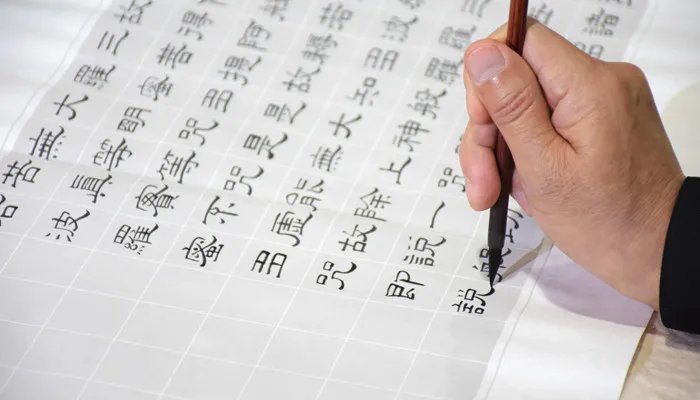 諸
若波羅
故得阿耨多羅
三菩提故知般
羅蜜多是大神咒
大明咒是無上咒
無等等咒能除一切
苦真實不虛故説般
若波羅蜜多咒即説